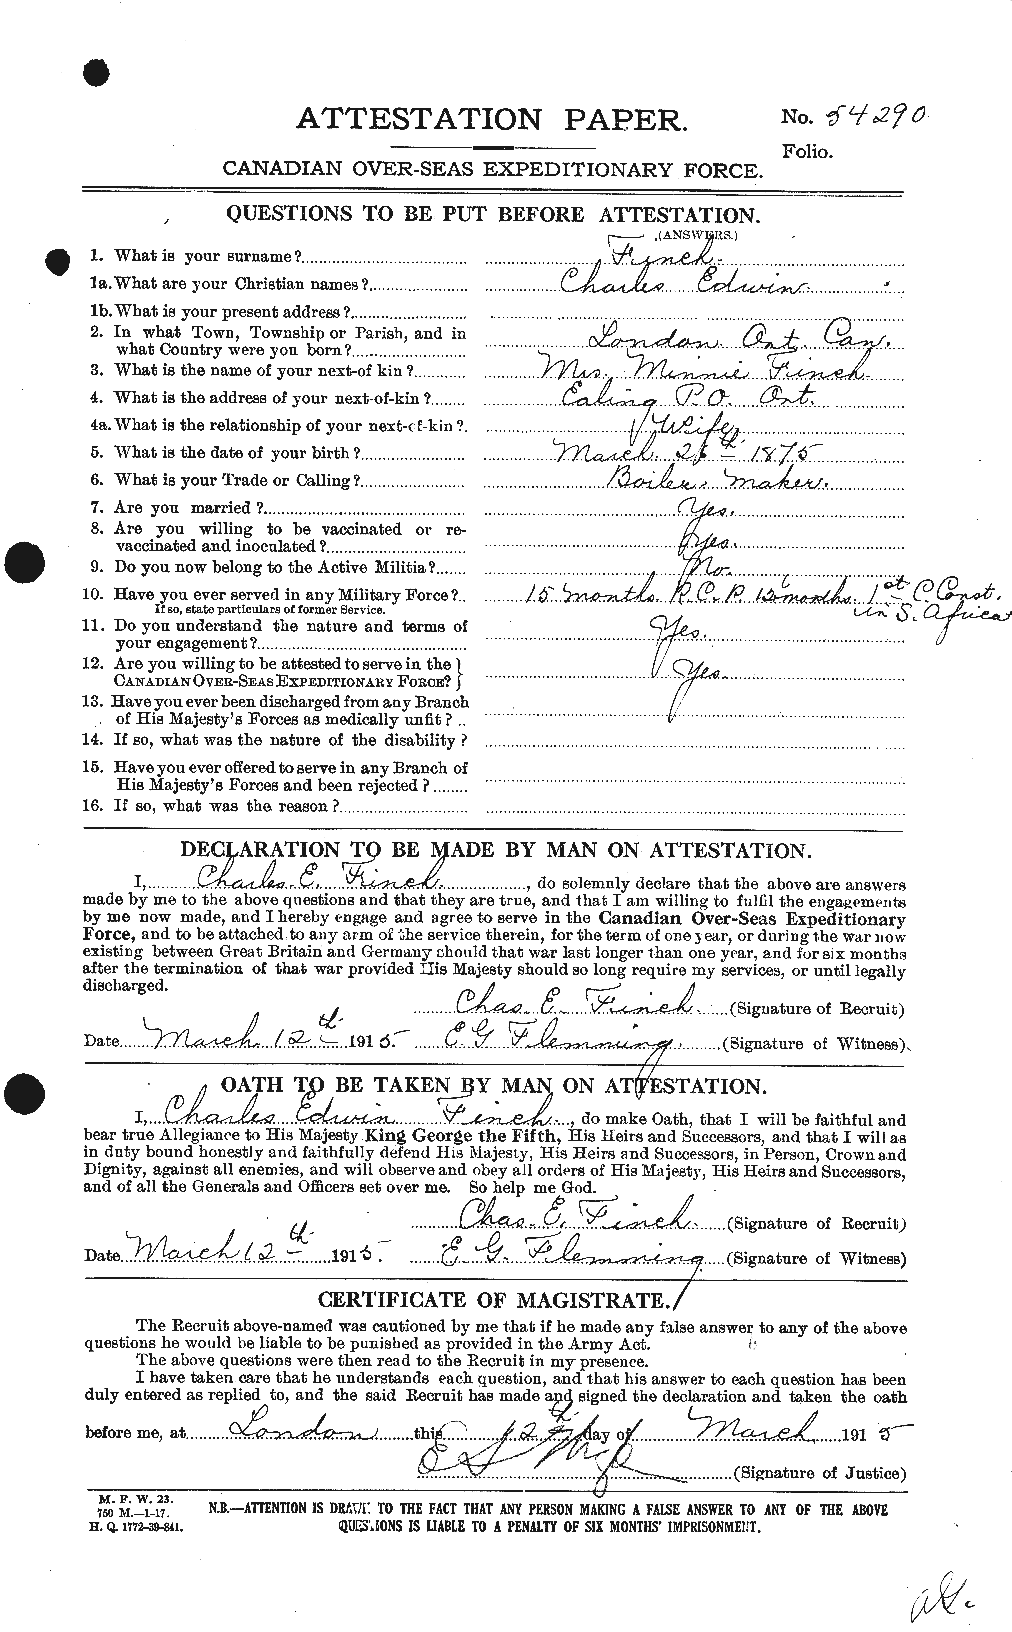 ATTESTATION PAPER.
No. 54290
Folio.
CANADIAN OVER-SEAS EXPEDITIONARY FORCE.
QUESTIONS TO BE PUT BEFORE ATTESTATION.
(ANSWERS.)
1. What is your surname? Finch
1a. What are your Christian names? Charles Edwin
1b. What is your present address?
2. In what Town, Township or Parish, and in
what Country were you born? London Ont. Can.
3. What is the name of your next-of kin? Mrs. Minnie Finch
4. What is the address of your next-of-kin? Ealing P.O. Ont.
4a. What is the relationship of your next-of-kin? Wife
5. What is the date of your birth? March th 1875
6. What is your Trade or Calling? Boiler maker.
7. Are you married? Yes.
8. Are you willing to be vaccinated or re-
vaccinated and inoculated? Yes.
9. Do you now belong to the Active Militia? No
10. Have you ever served in any Military Force? 15 months R.C.R. 12 months. 1st C. Const.
If so, state particulars of former Service. in S. Africa
11. Do you understand the nature and terms of
your engagement? Yes.
12. Are you willing to be attested to serve in the
CANADIAN OVER-SEAS EXPEDITIONARY FORCE? Yes.
13. Have you ever been discharged from any Branch
of His Majesty's Forces as medically unfit?
14. If so, what was the nature of the disability?
15. Have you ever offered to serve in any Branch of
His Majesty's Forces and been rejected?
16. If so, what was the reason?
DECLARATION TO BE MADE BY MAN ON ATTESTATION.
I, Charles E. Finch, do solemnly declare that the above are answers
made by me to the above questions and that they are true, and that I am willing to fulfil the engagements
by me now made, and I hereby engage and agree to serve in the Canadian Over-Seas Expeditionary
Force, and to be attached to any arm of the service therein, for the term of one year, or during the war now
existing between Great Britain and Germany should that war last longer than one year, and for six months
after the termination of that war provided His Majesty should so long require my services, or until legally
discharged.
Chas. E. Finch (Signature of Recruit)
Date March 12th 1915. E G Flemming (Signature of Witness)
OATH TO BE TAKEN BY MAN ON ATTESTATION.
I, Charles Edwin Finch, do make Oath, that I will be faithful and
bear true Allegiance to His Majesty King George the Fifth, His Heirs and Successors, and that I will as
in duty bound honestly and faithfully defend His Majesty, His Heirs and Successors, in Person, Crown and
Dignity, against all enemies, and will observe and obey all orders of His Majesty, His Heirs and Successors,
and of all the Generals and Officers set over me. So help me God.
Chas. E. Finch (Signature of Recruit)
Date March 12th 1915. E G. Flemming (Signature of Witness)
CERTIFICATE OF MAGISTRATE.
The Recruit above-named was cautioned by me that if he made any false answer to any of the above
questions he would be liable to be punished as provided in the Army Act.
The above questions were then read to the Recruit in my presence.
I have taken care that he understands each question, and that his answer to each question has been
duly entered as replied to, and the said Recruit has made and signed the declaration and taken the oath
before me, at London this 12th day of March 1915
(Signature of Justice)
M. F. W. 23.
750 M.—1-17.
H. Q. 1772-39-841.
N.B.—ATTENTION IS DRAWN TO THE FACT THAT ANY PERSON MAKING A FALSE ANSWER TO ANY OF THE ABOVE
QUESTIONS IS LIABLE TO A PENALTY OF SIX MONTHS' IMPRISONMENT.